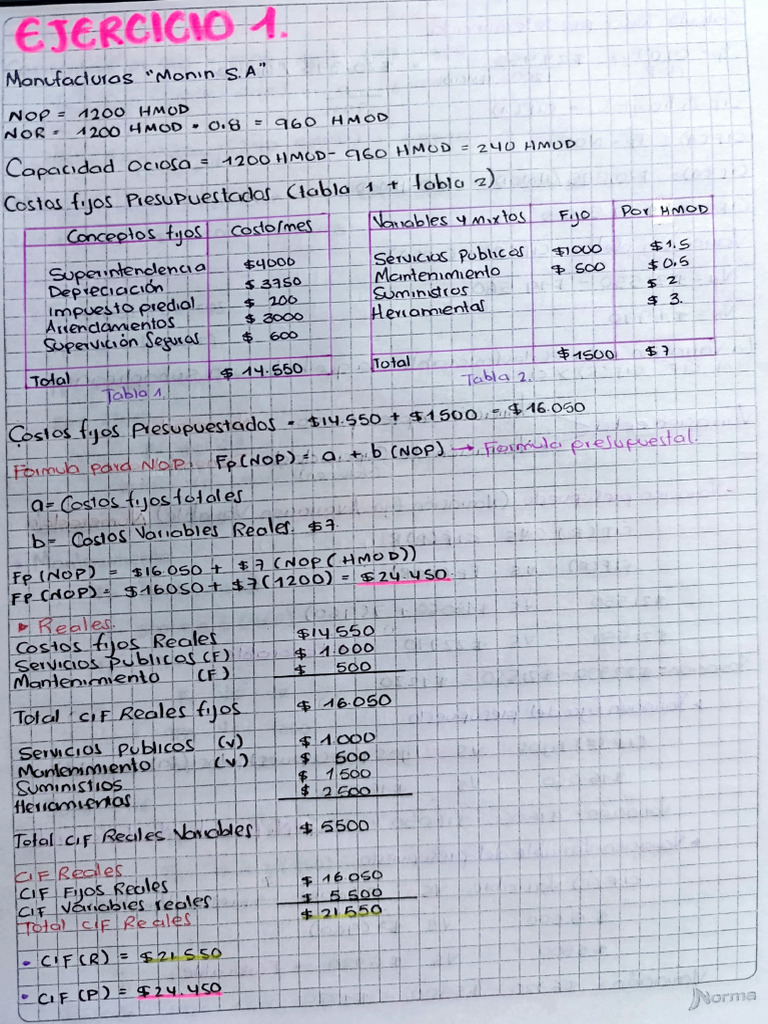 EJERCICIO 1.
Manufacturas "Monin S.A"
NOP = 1200 HMOD
NOR = 1200 HMOD • 0.8 = 960 HMOD
Capacidad Ociosa = 1200 HMOD - 960 HMOD = 240 HMOD
Costos fijos Presupuestados (tabla 1 + tabla 2)
Conceptos fijos Costo/mes
Superintendencia $4000
Depreciación $3750
Impuesto predial $ 200
Arrendamientos $ 3000
Supervición Seguras $ 600
Total $ 14.550
Tabla 1.
Variables y mixtos Fijo Por HMOD
Servicios Publicos $1000 $1.5
Mantenimiento $ 500 $0.5
Suministros $ 2
Herramientas $ 3.
Total $1500 $7
Tabla 2.
Costos fijos Presupuestados = $14.550 + $1500 = $16.050
Formula para N.O.P. Fp(NOP) = a + b (NOP) → Formula presupuestal.
a= Costos fijos totales
b= Costos Variables Reales $7.
Fp (NOP) = $16.050 + $7 (NOP (HMOD))
Fp (NOP) = $16050 + $7(1200) = $24.450.
▸ Reales.
Costos fijos Reales $14 550
Servicios publicos (F) $ 1.000
Mantenimiento (F) $ 500
Total CIF Reales fijos $ 16.050
Servicios Publicos (v) $ 1.000
Mantenimiento (v) $ 500
Suministros $ 1 500
Herramientas $ 2 500
Total CIF Reales Variables $ 5500
CIF Reales
CIF Fijos Reales $ 16 050
CIF Variables reales $ 5.500
Total CIF Reales $ 21 550
• CIF(R) = $21.550
• CIF (P) = $24.450
Norma